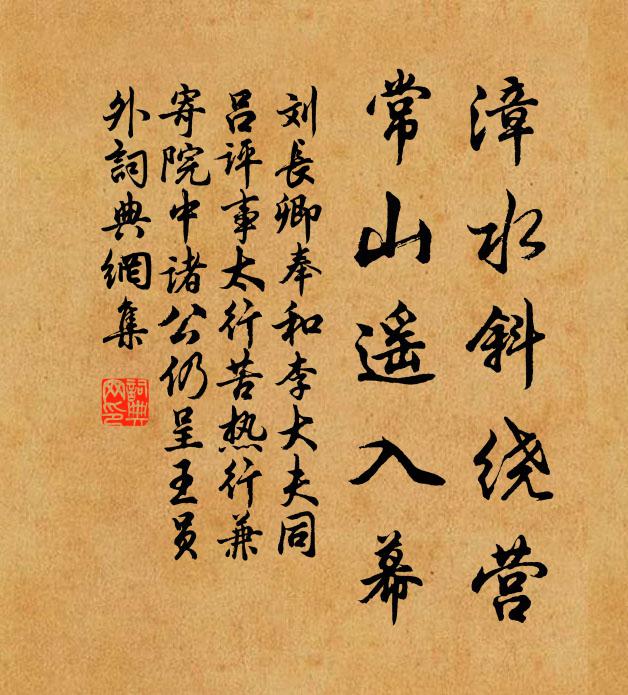 漳水斜绕营
常山遥入幕
刘長卿奉和李大夫同
吕评事太行苦热行兼
寄院中诸公仍呈王员
外詞典網集
詞典网印